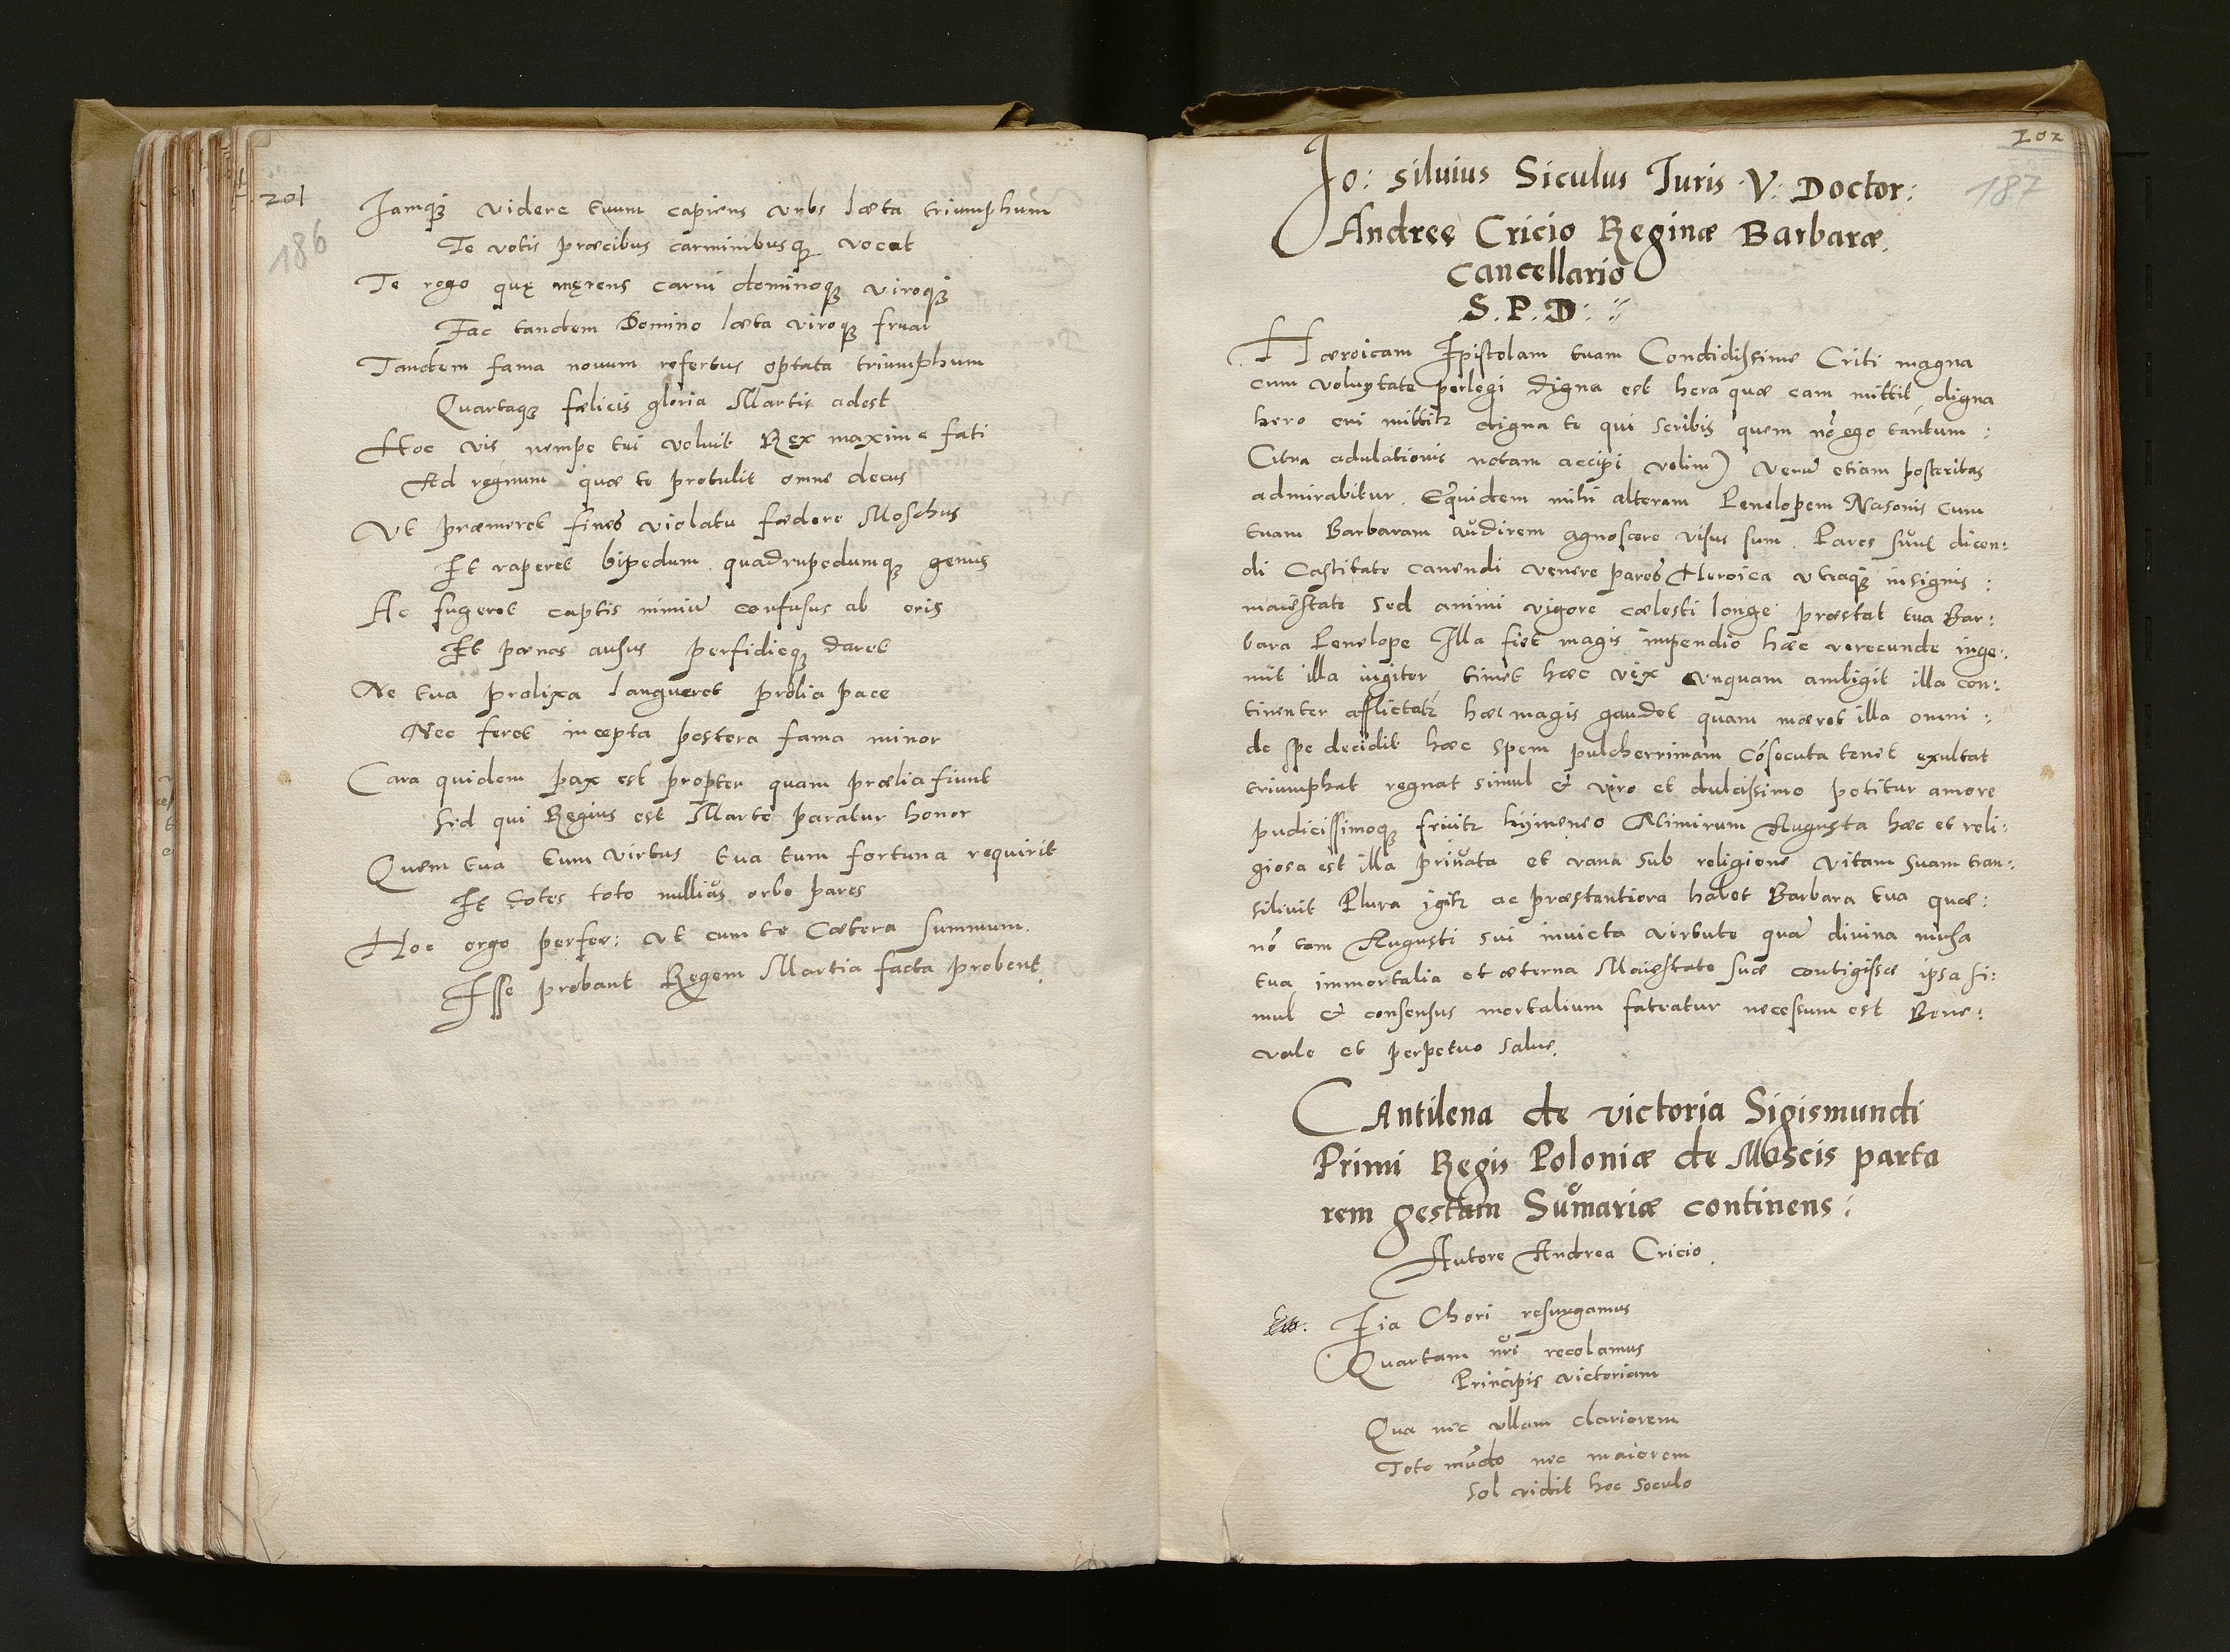 201
186
Iamq3 videre tuum capiens urbs læta triumphum
Te votis præcibus carminibusq3 vocat
Te rogo quę męrens carui dominoq3 viroq3
Fac tandem Domino læta viroq3 fruar
Tandem fama novum refertus optata triumphum
Quartaq3 fælicis gloria Martis adest
Hoc vis nempe tui voluit Rex maxime fati
Ad regnum quæ te protulit omne decus
Ut præmeret fines violatu fædere Moschus
Et raperet bipedum quadrupedumq3 genus
Ac fugeret captis nimiũ confusus ab oris
Et pœnas ausus perfidieq3 daret
Ne tua prolixa langueret prælia pace
Nec feret incepta postera fama minor
Cara quidem pax est propter quam prælia fiunt
Sed qui Regius est Marte paratur honor
Quem tua tum virtus tua tum fortuna requirit
Et dotes toto nullius orbe pares
Hoc ergo perfer: ut cum te Cætera summum
Esse probant Regem Martia facta probent.
202
187
Jo: Siluius Siculus Iuris V: Doctor:
Andreę Cricio Reginæ Barbaræ
Cancellario
S. P. D:
Hæroicam Epistolam tuam Candidissime Criti magna
cum voluptate perlegi digna est hera quæ eam mittit, digna
hero cui mittit̃ digna te qui scribis quem nõ ego tantum :
Citra adulationis notam accipi velim) verũ etiam posteritas
admirabitur. Equidem mihi alteram Penelopem Nasonis cum
tuam Barbaram audirem agnoscere visus sum. Pares sunt dicen:
di Castitate canendi venere pares Heroica utraq3 insignis :
maiestate Sed animi vigore cælesti longe præstat tua Bar:
bara Penelope Illa flet magis impendio hæc verecunde inge:
mit illa iugiter timet hæc vix unquam ambigit illa con:
tinenter afflictat̃ hæc magis gaudet quam mæret illa omni :
de spe decidit hæc spem pulcherrimam cõsecuta tenet exultat
triumphat regnat simul & viro et dulcissimo potitur amore
pudicissimoq3 fruit̃ hymeneo Nimirum Augusta hæc et reli:
giosa est illa privata et vana sub religione vitam suam tran:
silivit Plura igit̃ ac præstantiora habet Barbara tua quæ:
nõ tam Augusti sui invicta virtute quã divina musa
tua immortalia et æterna Maiestate suæ contigisse ipsa si:
mul & consensus mortalium fateatur necessum est Bene:
vale et perpetuo salve.
CAntilena de victoria Sigismundi
Primi Regis Poloniæ de Moscis parta
rem gestam Sumariæ continens:
Autore Andrea Cricio.
Eia Chori resurgamus
Quartam nr̃i recolamus
Principis victoriam
Qua nec ullam clariorem
Toto mũdo nec maiorem
Sol vidit hoc seculo